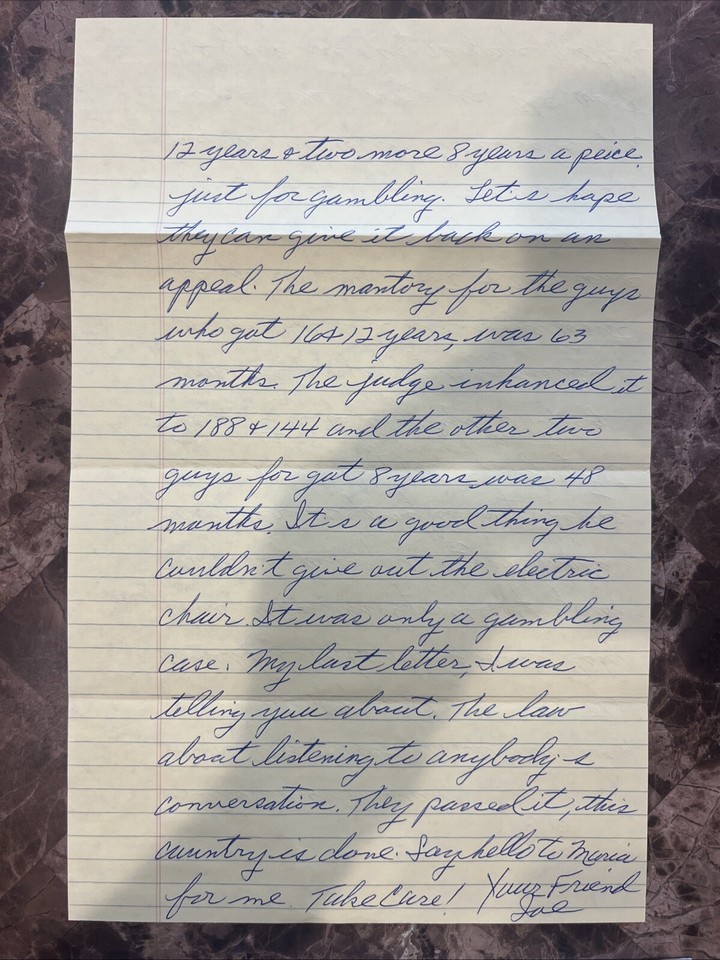 12 years & two more 8 years a peice
just for gambling. Let's hope
they can give it back on an
appeal. The mantory for the guys
who got 16 & 12 years, was 63
months. The judge inhanced it
to 188 & 144 and the other two
guys for got 8 years was 48
months. It's a good thing he
couldn't give out the electric
chair. It was only a gambling
case. My last letter, I was
telling you about. The law
about listening to anybody's
conversation. They passed it, this
country is done. Say hello to Maria
for me. Take Care! Your Friend
Joe